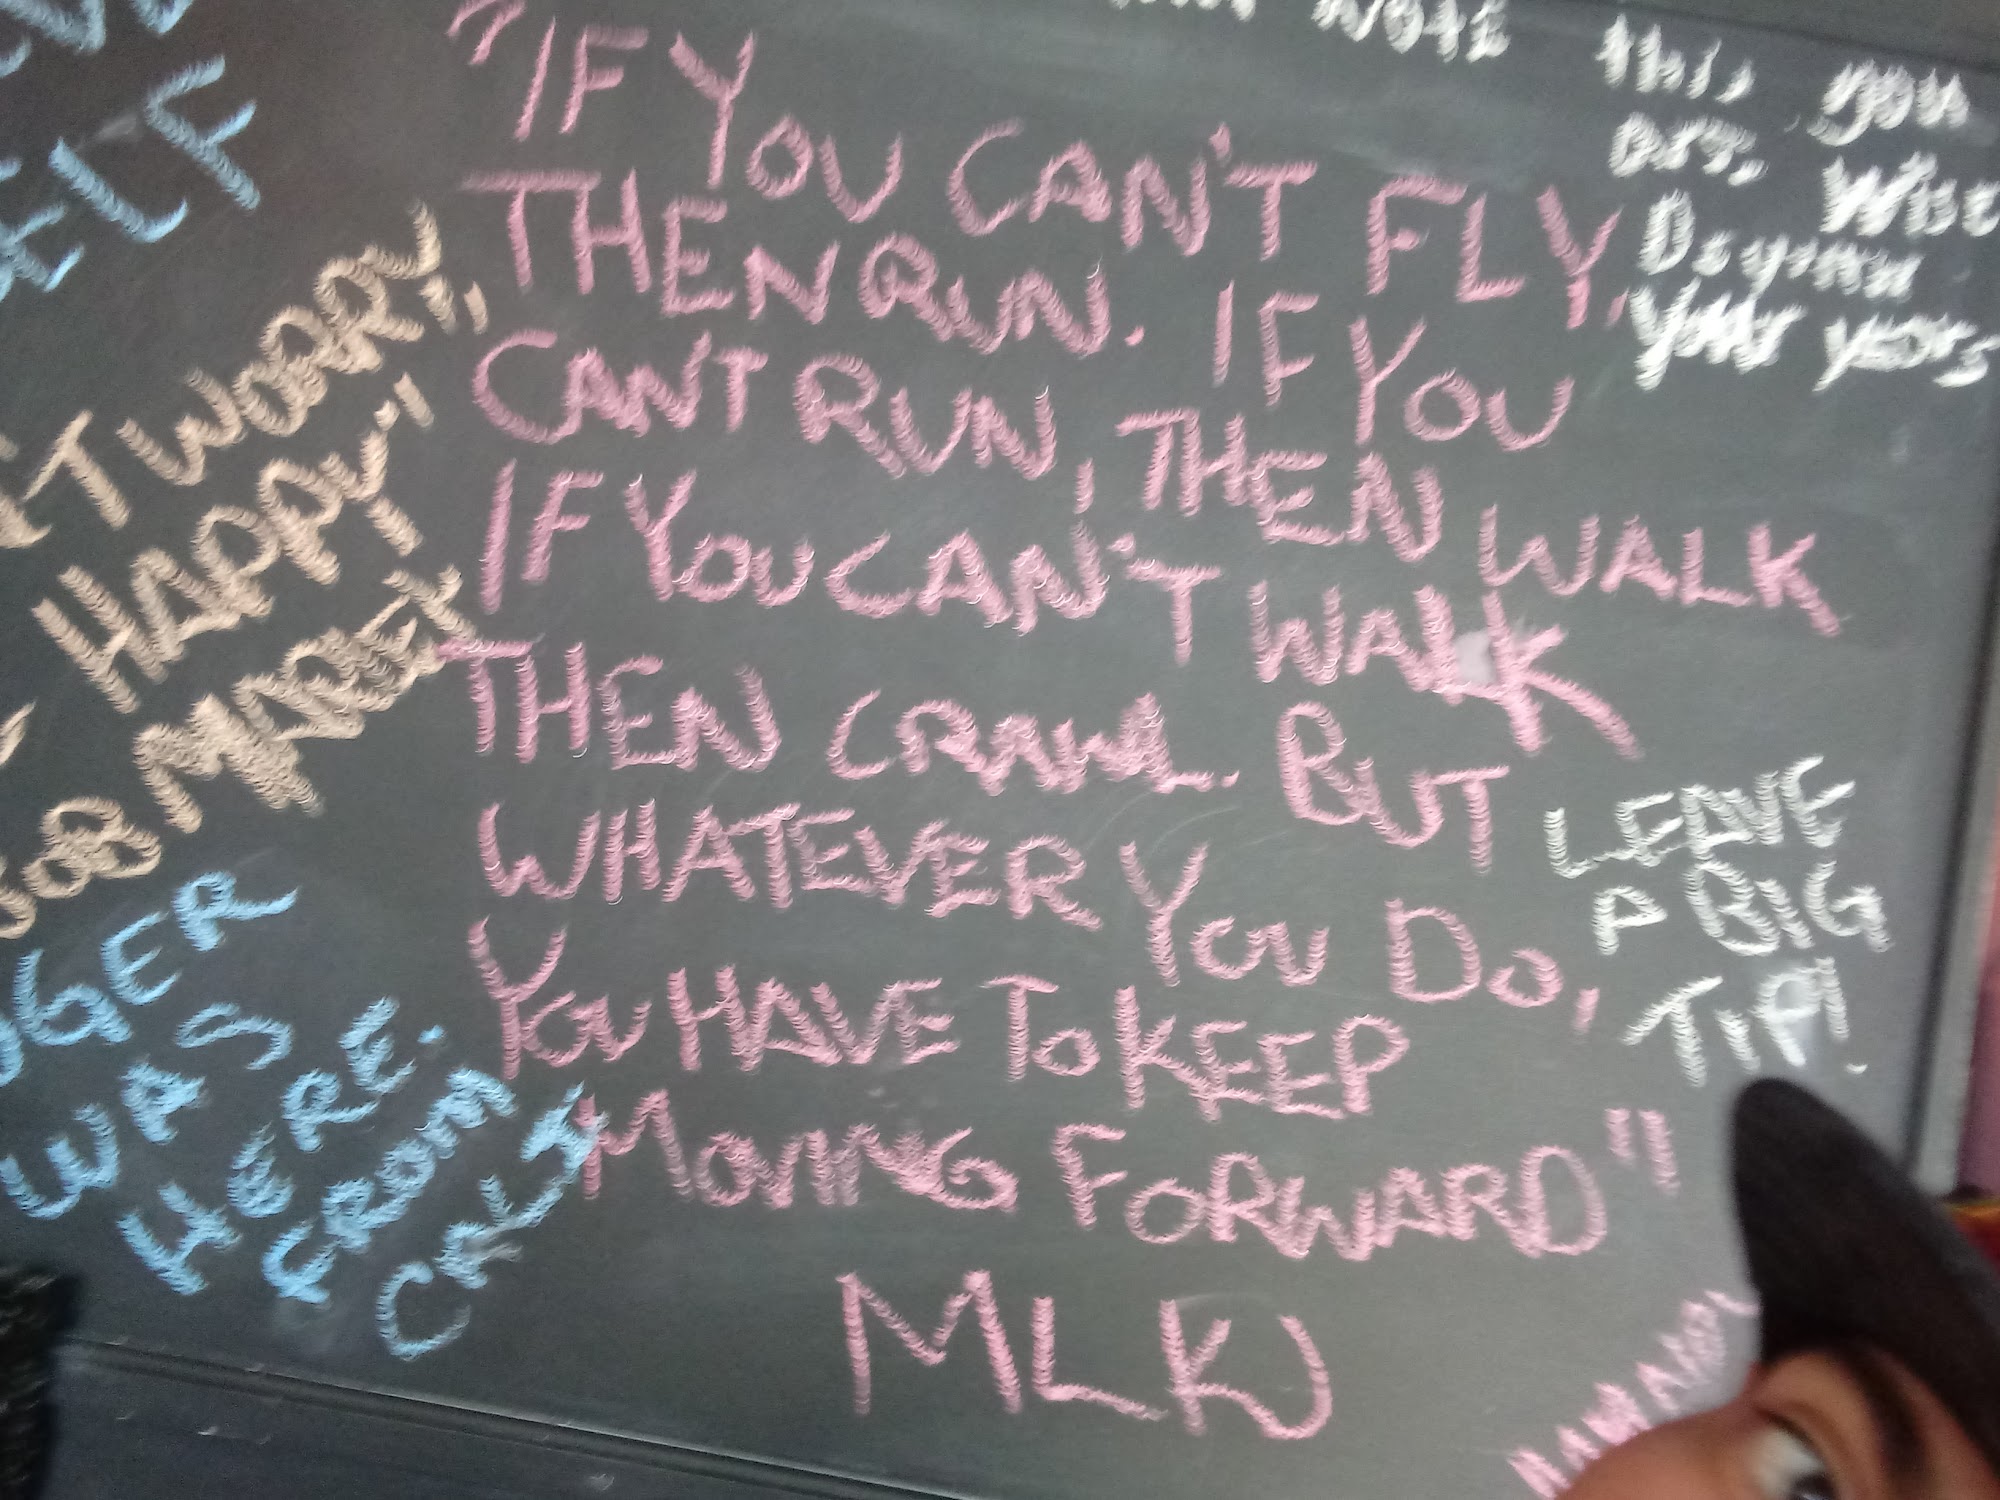 ELF
"IF YOU CAN'T FLY,
THEN RUN. IF YOU
CAN'T RUN, THEN WALK
IF YOU CAN'T WALK
THEN CRAWL. BUT
WHATEVER YOU DO,
YOU HAVE TO KEEP
MOVING FORWARD"
MLK
'T WORRY,
HAPPY"
BOB MARLEY
GER
WAS
HERE.
FROM
CALI
this you
are. Wise
Your years
LEAVE
A BIG
TIP!